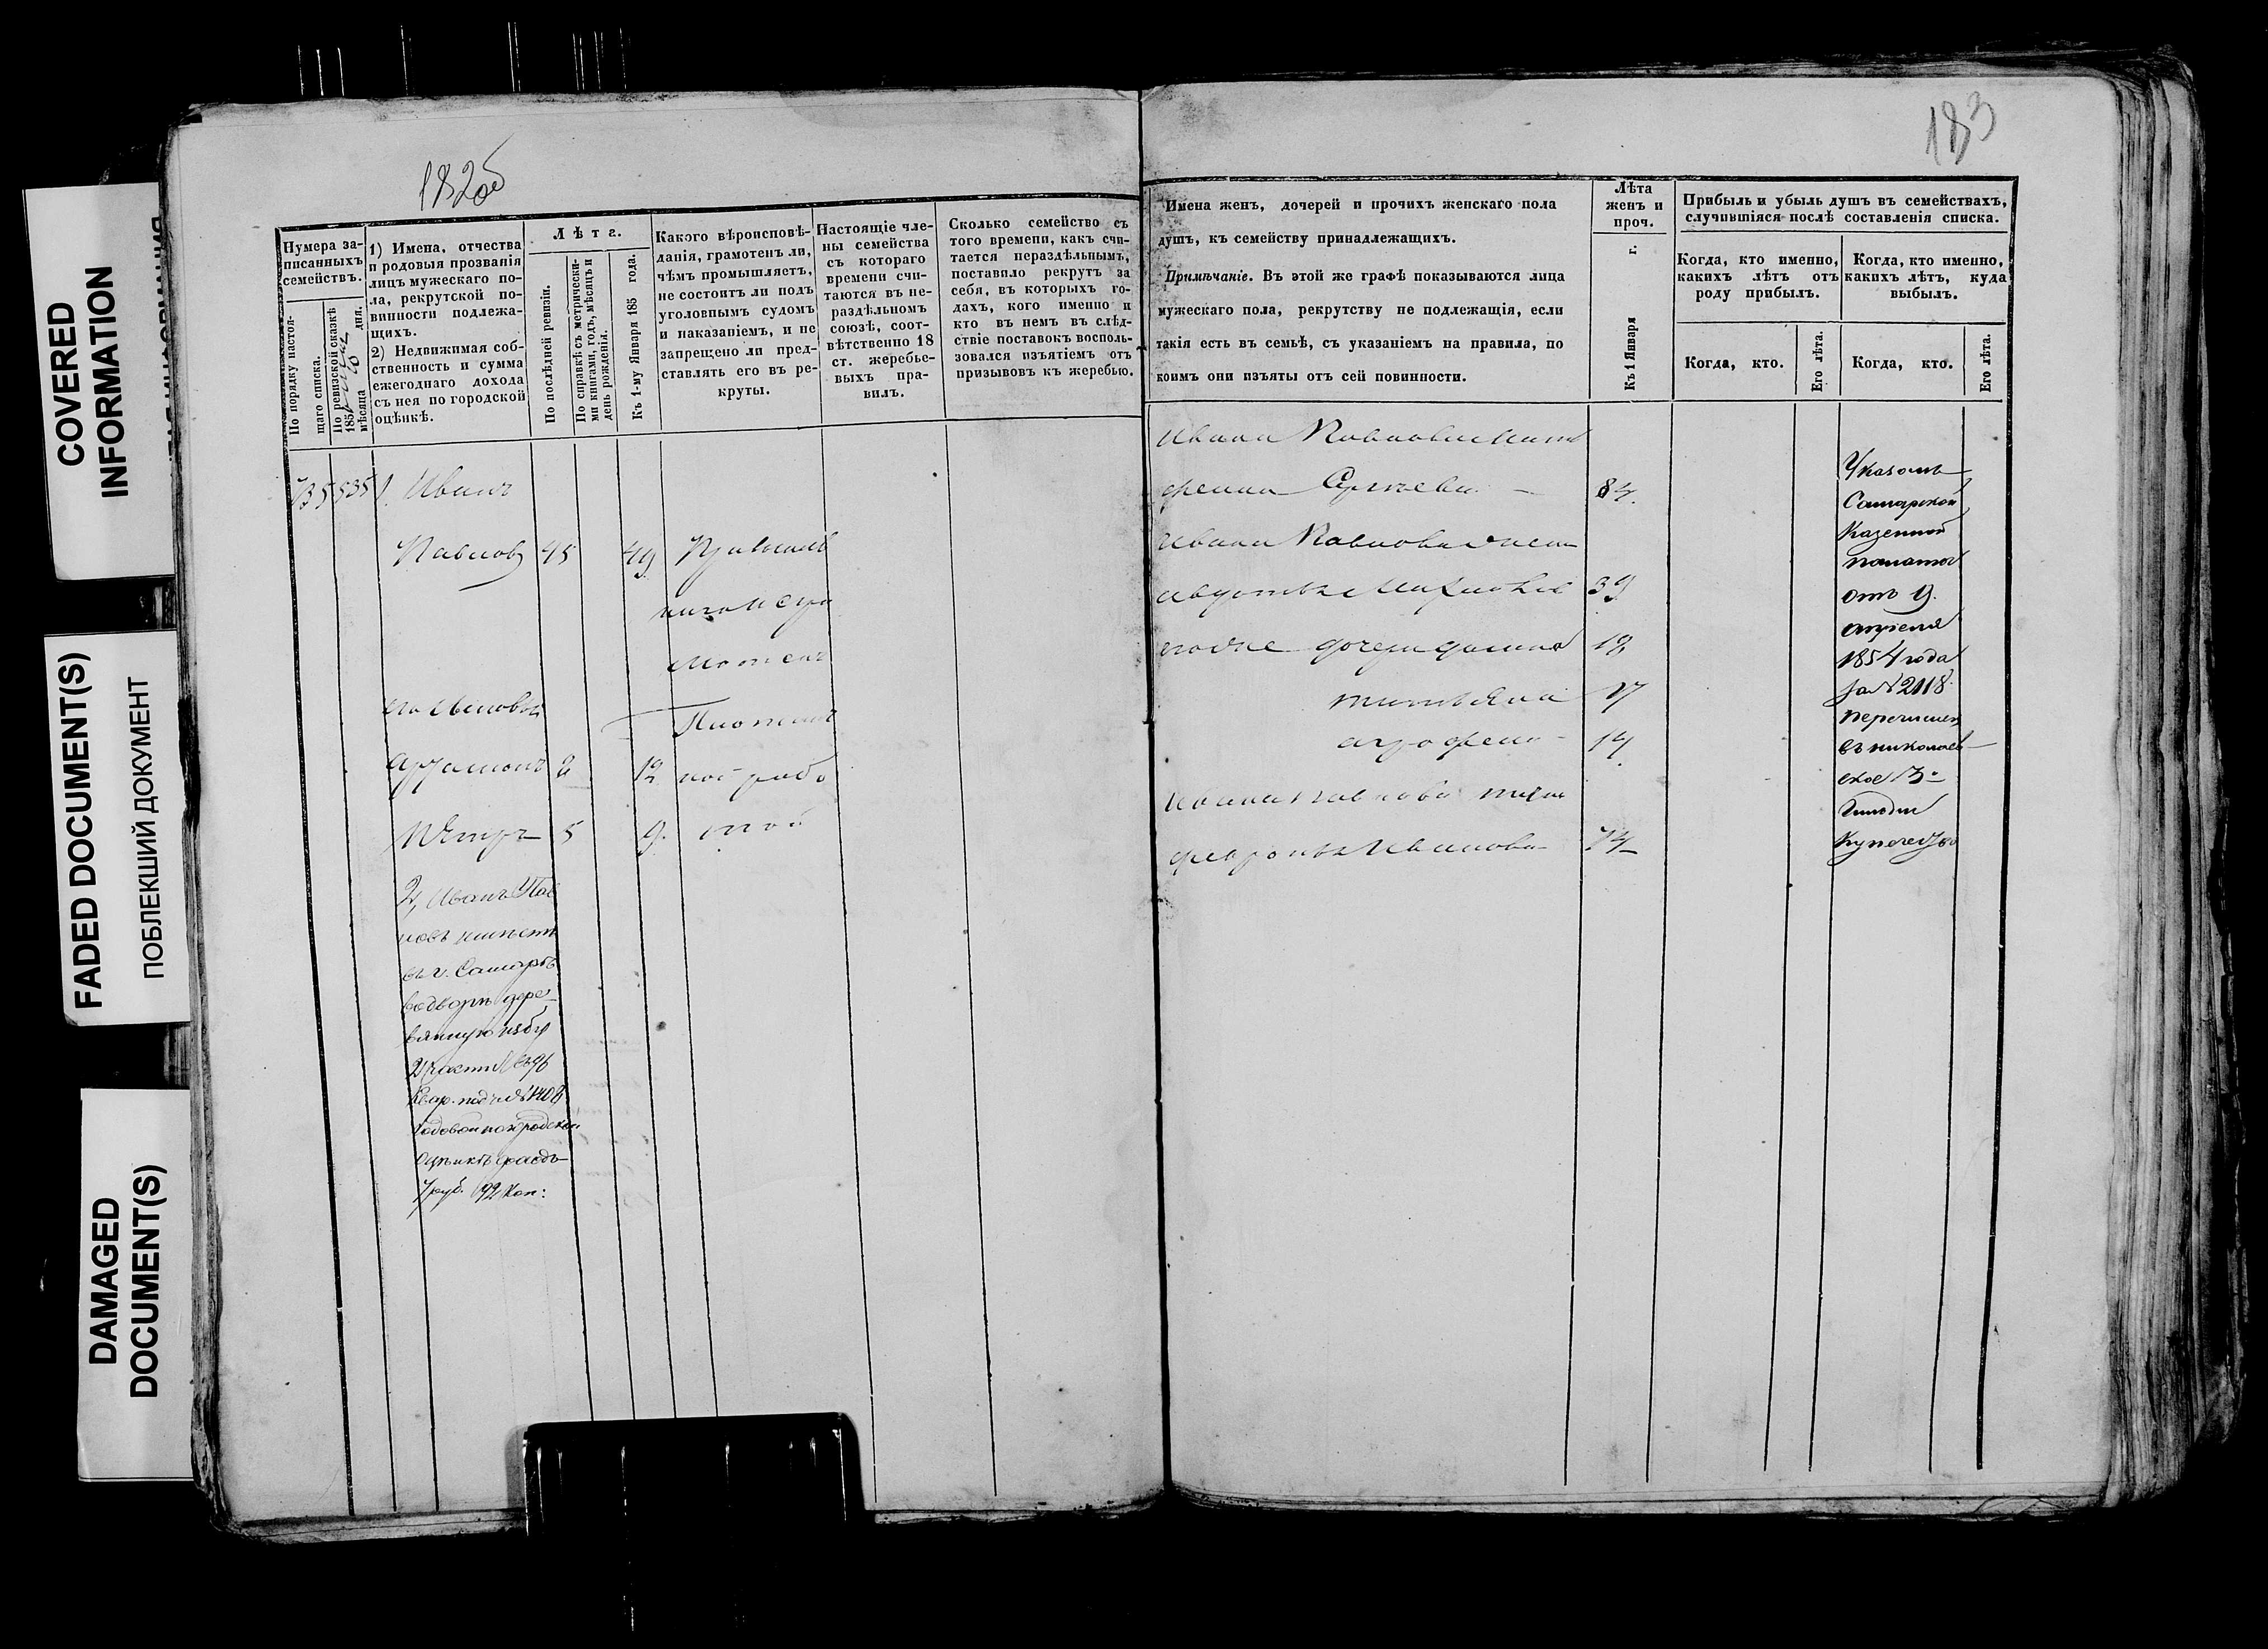 COVERED
INFORMATION
FADED DOCUMENT(S)
ПОБЛЕКШИЙ ДОКУМЕНТ
DAMAGED
DOCUMENT(S)
182об
Нумера за-
писанныхъ
семействъ.
По порядку настоя-
щаго списка.
По ревизской сказкѣ
185
мѣсяца 10 дня.
1) Имена, отчества
и родовыя прозванія
лицъ мужескаго по-
ла, рекрутской по-
винности подлежа-
щихъ.
2) Недвижимая соб-
ственность и сумма
ежегоднаго дохода
съ нея по городской
оцѣнкѣ.
Лѣта.
По послѣдней ревизіи.
По справкѣ съ метрически-
ми книгами, годъ, мѣсяцъ и
день рожденія.
Къ 1-му Января 185 года.
Какого вѣроисповѣ-
данія, грамотенъ ли,
чѣмъ промышляетъ,
не состоитъ ли подъ
уголовнымъ судомъ
и наказаніемъ, и не
запрещено ли пред-
ставлять его въ ре-
круты.
Настоящіе чле-
ны семейства
съ котораго
времени счи-
таются въ не-
раздѣльномъ
союзѣ, соот-
вѣтственно 18
ст. жеребье-
выхъ пра-
вилъ.
Сколько семейство съ
того времени, какъ счи-
тается нераздѣльнымъ,
поставило рекрутъ за
себя, въ которыхъ го-
дахъ, кого именно и
кто въ немъ въ слѣд-
ствіе поставокъ восполь-
зовался изъятіемъ отъ
призывовъ къ жеребью.
535 1. Иванъ
Павловъ 45 49 Православ
его сыновья
Артамонъ 2 12
Петръ 5 9.
2, Иванъ Пав
ловъ имѣетъ
въ г. Самарѣ
во дворѣ дере-
вянную избу
2 части въ 96
квар. под №
годовой по городской
оцѣнкѣ доходъ
7 руб. 92 коп:
183
Имена женъ, дочерей и прочихъ женскаго пола
душъ, къ семейству принадлежащихъ.
Примѣчаніе. Въ этой же графѣ показываются лица
мужескаго пола, рекрутству не подлежащія, если
такія есть въ семьѣ, съ указаніемъ на правила, по
коимъ они изъяты отъ сей повинности.
Лѣта
женъ и
проч.
Къ 1 Января г.
Прибыль и убыль душъ въ семействахъ,
случившіяся послѣ составленія списка.
Когда, кто именно,
какихъ лѣтъ отъ
роду прибылъ.
Когда, кто.
Его лѣта.
Когда, кто именно,
какихъ лѣтъ, куда
выбылъ.
Когда, кто.
Его лѣта.
Ивана Павлова мать
Сергѣева 84.
Ивана Павлова жена
Авдотья 39
дочери 18
татьяна 17
аграфена 14
Ивана Павлова теща
февронья Иванова 74
Указомъ
Самарской
Казенной
палаты
отъ 9.
апреля
1854 года
за № 2118.
перечислен
въ николаев-
ское 3й
Гильдии
Купечество